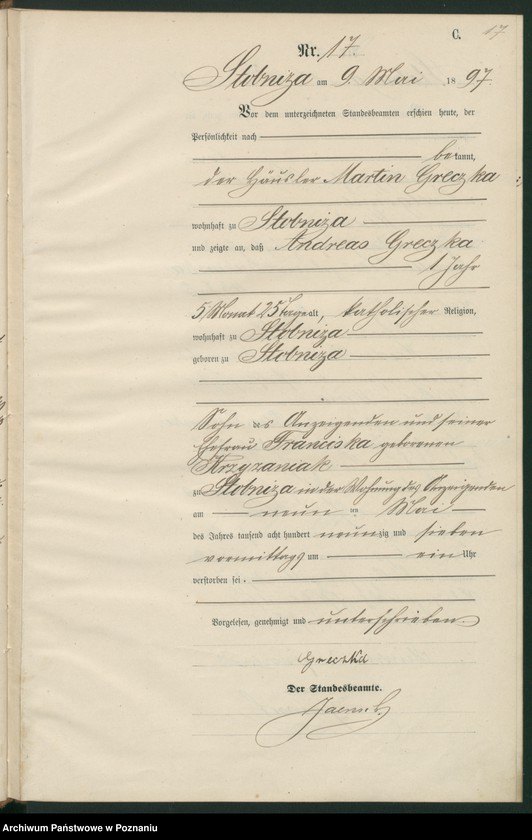 C. 17
Nr. 17.
Stobniza am 9. Mai 1897.
Vor dem unterzeichneten Standesbeamten erschien heute, der
Persönlichkeit nach
bekannt,
der Häusler Martin Greczka
wohnhaft zu Stobniza
und zeigte an, daß Andreas Greczka
1 Jahr
5 Monat 25 Tage alt, katholischer Religion,
wohnhaft zu Stobniza
geboren zu Stobniza
Sohn des Anzeigenden und seiner
Ehefrau Franciska geborenen
Krzyzaniak
zu Stobniza in der Wohnung des Anzeigenden
am neun ten Mai
des Jahres tausend acht hundert neunzig und sieben
vormittags um ein Uhr
verstorben sei.
Vorgelesen, genehmigt und unterschrieben.
Greczka
Der Standesbeamte.
Archiwum Państwowe w Poznaniu